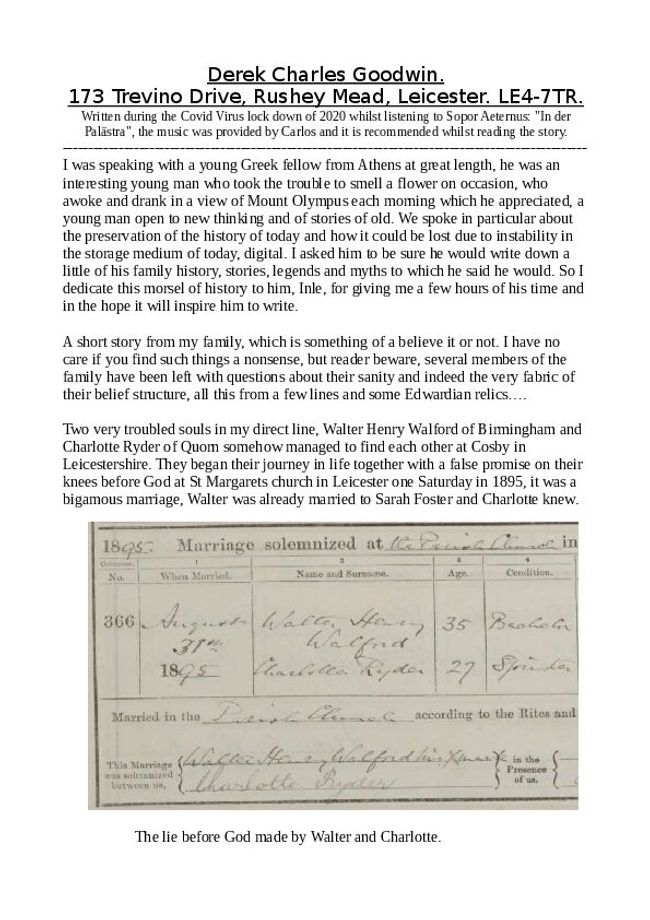 Derek Charles Goodwin.
173 Trevino Drive, Rushey Mead, Leicester. LE4-7TR.
Written during the Covid Virus lock down of 2020 whilst listening to Sopor Aeternus: "In der
Palästra", the music was provided by Carlos and it is recommended whilst reading the story.
I was speaking with a young Greek fellow from Athens at great length, he was an
interesting young man who took the trouble to smell a flower on occasion, who
awoke and drank in a view of Mount Olympus each morning which he appreciated, a
young man open to new thinking and of stories of old. We spoke in particular about
the preservation of the history of today and how it could be lost due to instability in
the storage medium of today, digital. I asked him to be sure he would write down a
little of his family history, stories, legends and myths to which he said he would. So I
dedicate this morsel of history to him, Inle, for giving me a few hours of his time and
in the hope it will inspire him to write.
A short story from my family, which is something of a believe it or not. I have no
care if you find such things a nonsense, but reader beware, several members of the
family have been left with questions about their sanity and indeed the very fabric of
their belief structure, all this from a few lines and some Edwardian relics….
Two very troubled souls in my direct line, Walter Henry Walford of Birmingham and
Charlotte Ryder of Quorn somehow managed to find each other at Cosby in
Leicestershire. They began their journey in life together with a false promise on their
knees before God at St Margarets church in Leicester one Saturday in 1895, it was a
bigamous marriage, Walter was already married to Sarah Foster and Charlotte knew.
1895. Marriage solemnized at the Parish Church in
1 2 3 4
No. When Married. Name and Surname. Age. Condition.
366 August Walter Henry 35 Bachelor
31st Walford
1895 Charlotte Ryder 27 Spinster
Married in the Parish Church according to the Rites and
This Marriage was solemnized between us, Walter Henry Walford his X mark in the Presence of us,
Charlotte Ryder
The lie before God made by Walter and Charlotte.